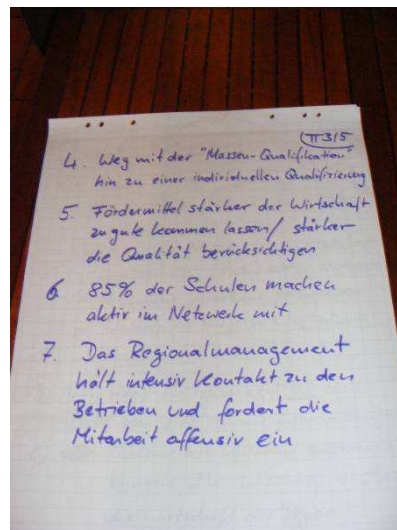 II 3/5
4. Weg mit der "Massen-Qualifikation"
hin zu einer individuellen Qualifizierung
5. Fördermittel stärker der Wirtschaft
zugute kommen lassen/ stärker
die Qualität berücksichtigen
6. 85% der Schulen machen
aktiv im Netzwerk mit
7. Das Regionalmanagement
hält intensiv Kontakt zu den
Betrieben und fordert die
Mitarbeit offensiv ein